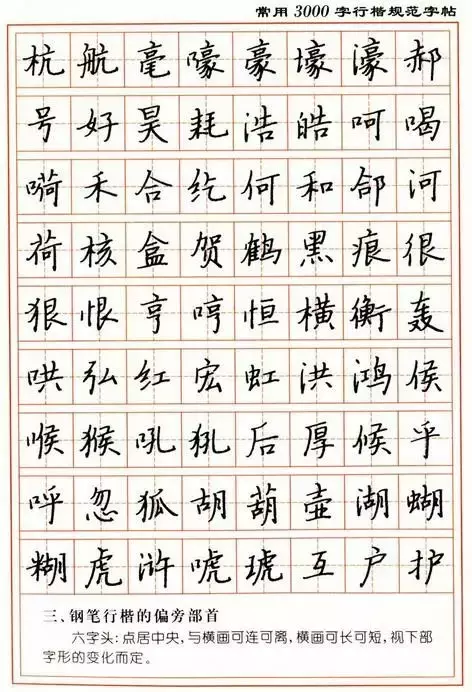 常用3000字行楷规范字帖
杭航毫嚎豪壕濠郝
号好昊耗浩皓呵喝
嗬禾合纥何和郃河
荷核盒贺鹤黑痕很
狠恨亨哼恒横衡轰
哄弘红宏虹洪鸿侯
喉猴吼犼后厚候乎
呼忽狐胡葫壶湖蝴
糊虎浒唬琥互户护
三、钢笔行楷的偏旁部首
六字头:点居中央,与横画可连可离,横画可长可短,视下部
字形的变化而定。